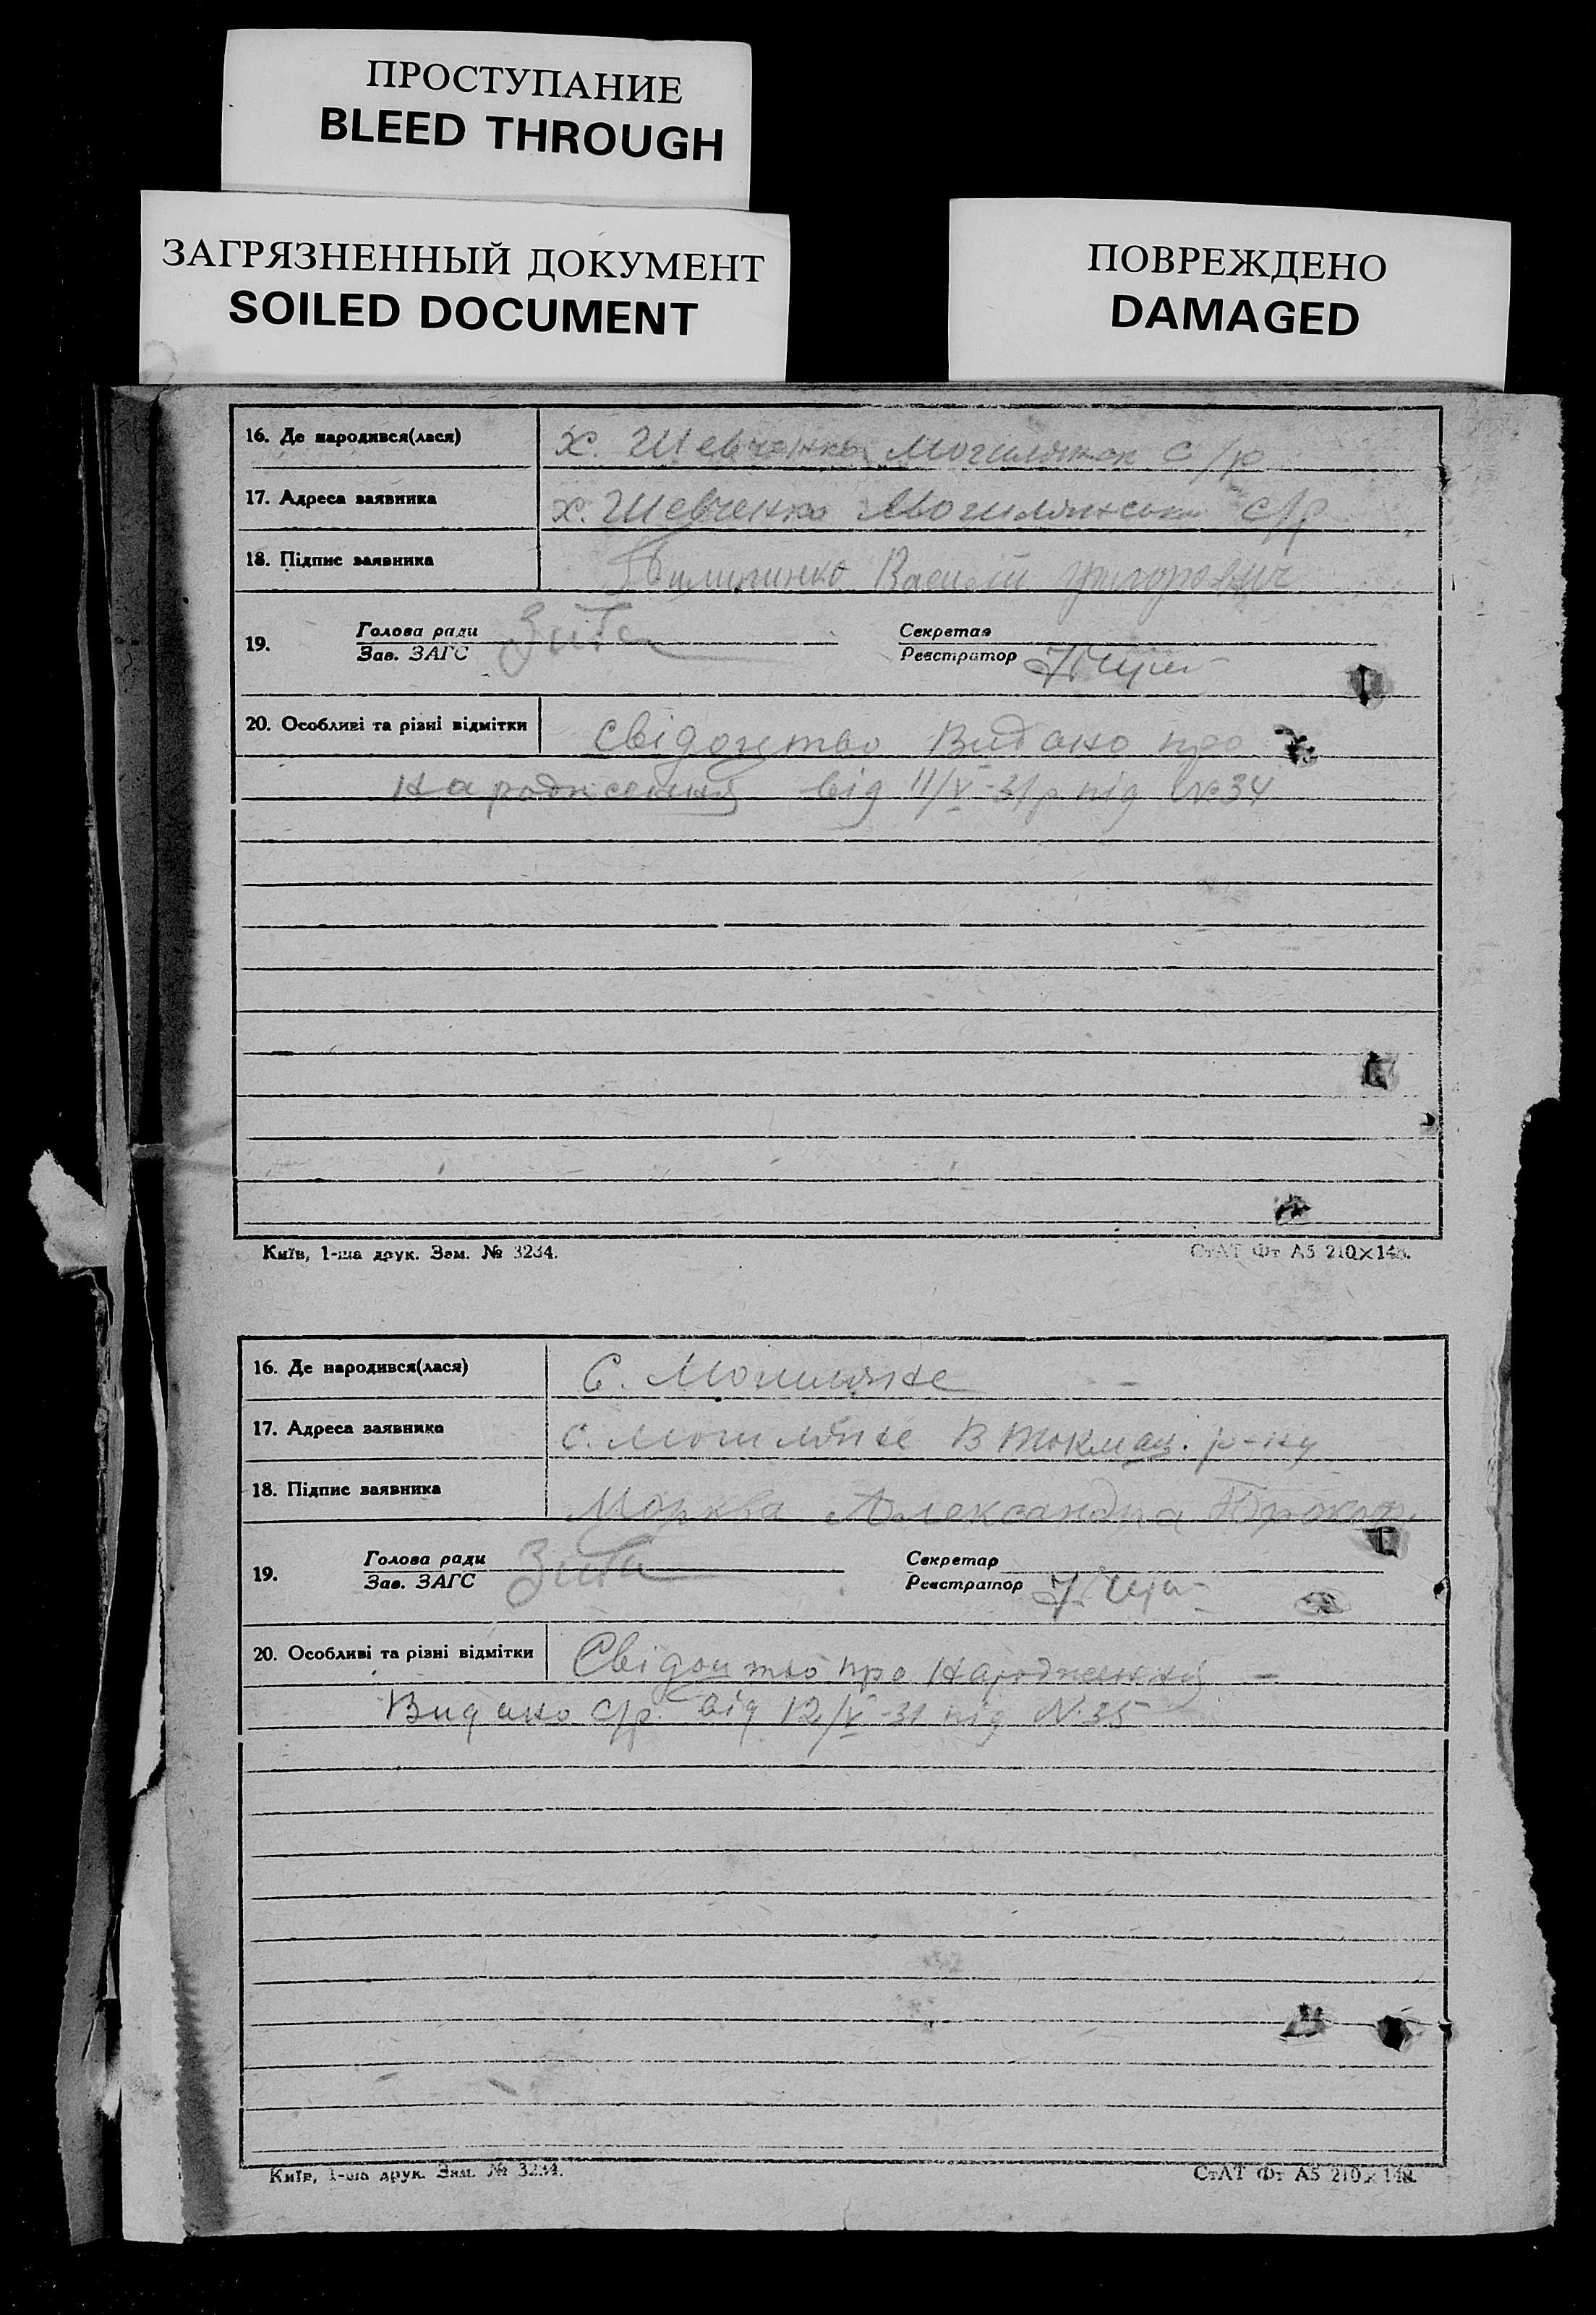 ПРОСТУПАНИЕ
BLEED THROUGH
ЗАГРЯЗНЕННЫЙ ДОКУМЕНТ
SOILED DOCUMENT
ПОВРЕЖДЕНО
DAMAGED
16. Де народився(лася) х. Шевченка с/р
17. Адреса заявника х. Шевченка с/р
18. Підпис заявника Василий
19. Голова ради Секретар
Зав. ЗАГС Реєстратор
20. Особливі та різні відмітки Свідоцтво Видано про
народження від 11/V-31р під №34
Київ, 1-ша друк. Зам. № 3234. СтАТ Фт А5 210×148.
16. Де народився(лася) С. Могиляне
17. Адреса заявника с. Могиляне В Токмац. р-ну
18. Підпис заявника Морква Александра
19. Голова ради Секретар
Зав. ЗАГС Реєстратор
20. Особливі та різні відмітки Свідоцтво про народження
Видано с/р. від 12/V-31 під №35
Київ, 1-ша друк. Зам. № 3234. СтАТ Фт А5 210×148.